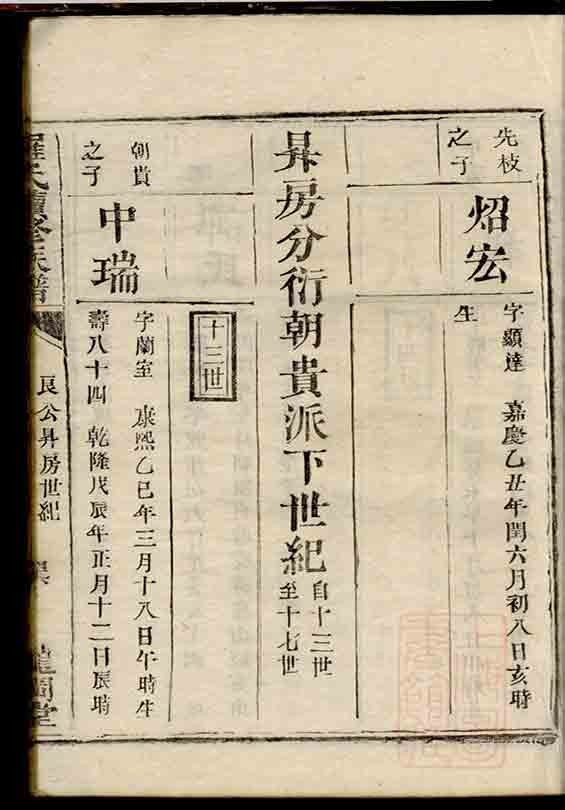 先枝
之子
炤宏
字顯達 嘉慶乙丑年閏六月初八日亥時
生
昇房分衍朝貴派下世紀
自十三世
至十七世
十三世
朝貴
之子
中瑞
字蘭室 康熙乙巳年三月十八日午時生
壽八十四 乾隆戊辰年正月十二日辰時
羅氏續修族譜
良公昇房世紀